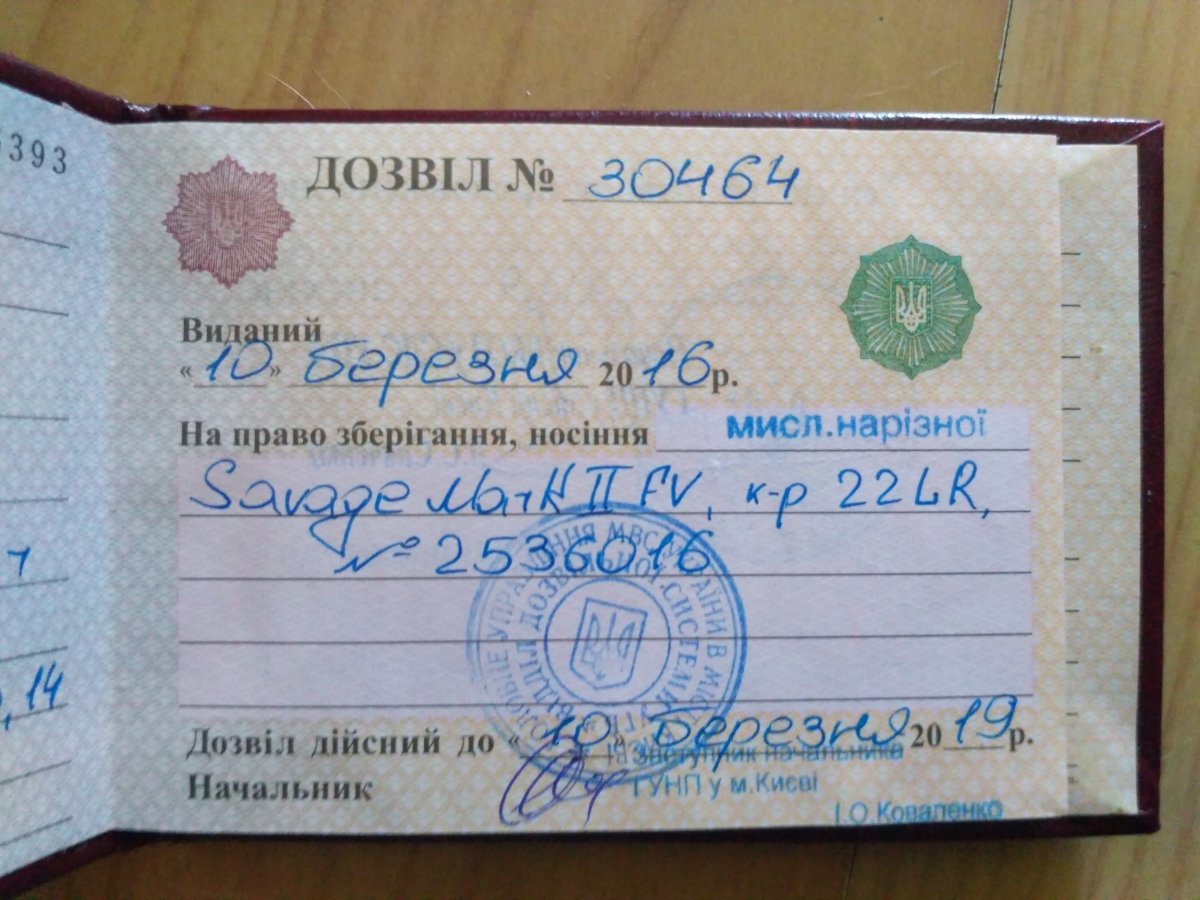 5393
ДОЗВІЛ № 30464
Виданий
« 10 » березня 2016р.
На право зберігання, носіння мисл.нарізної
Savage Mark II FV, к-р 22LR,
№ 2536016
14
Дозвіл дійсний до « 10 » березня 2019р.
Заступник начальника
Начальник
ГУНП у м.Києві
І.О.Коваленко
УПРАВЛІННЯ МВС УКРАЇНИ В МІСТІ
ДОЗВІЛЬНОЇ СИСТЕМИ